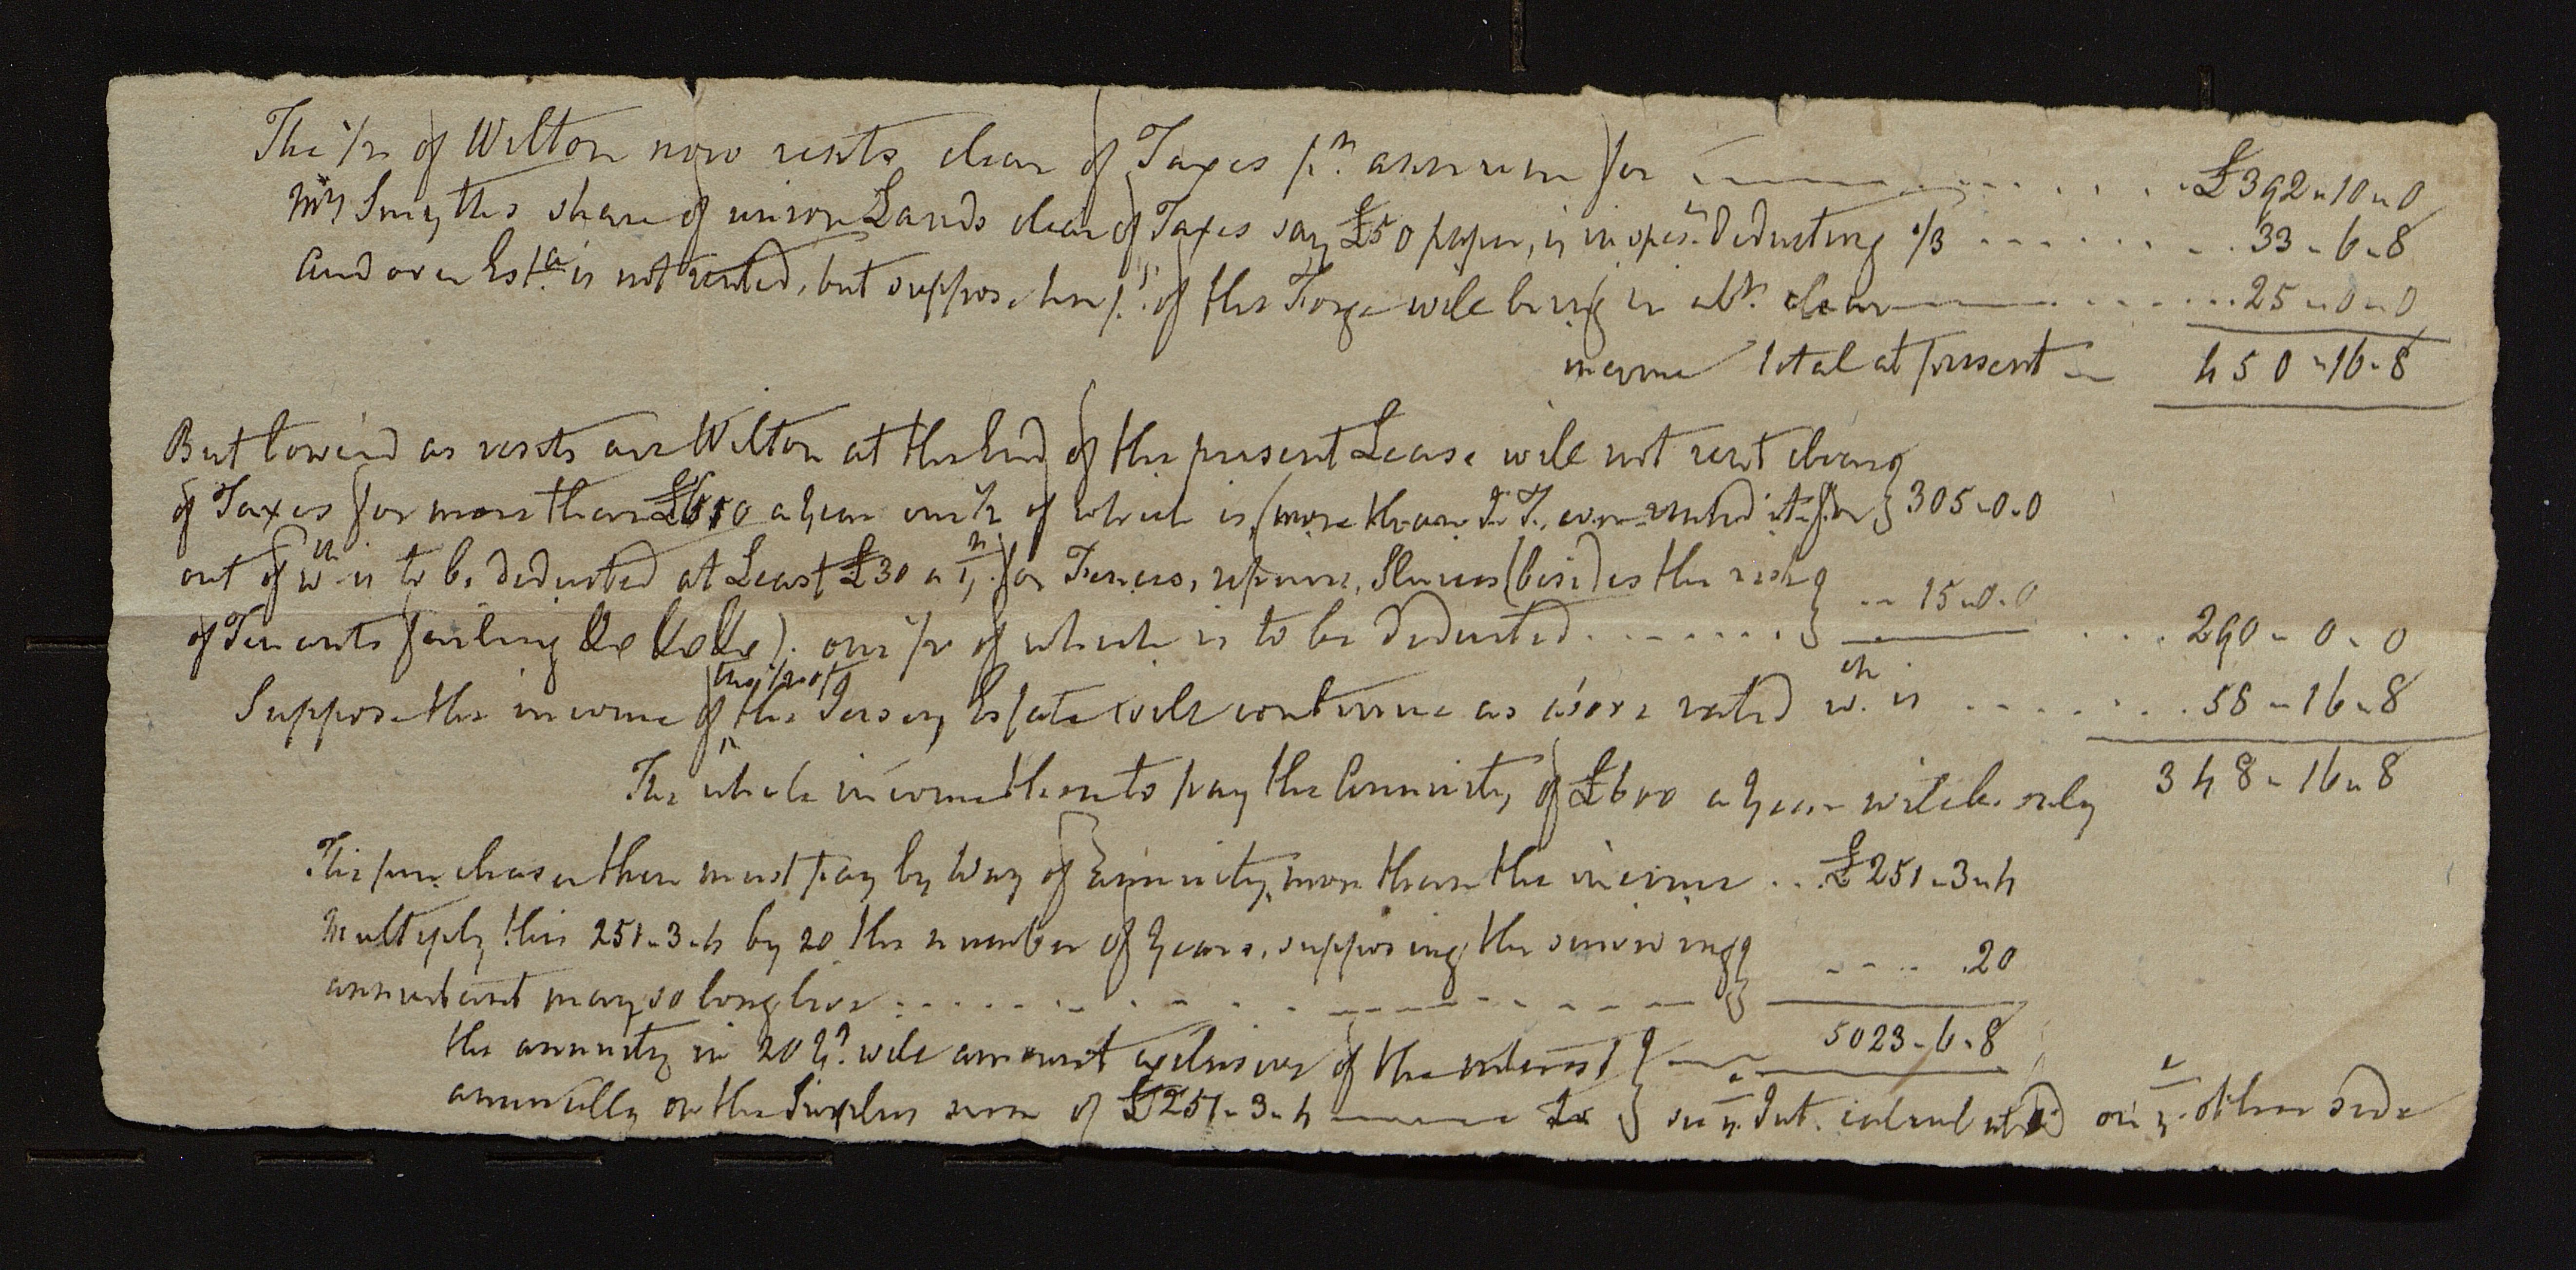 The 1/2 of Wilton now rents clear of Taxes pr. annum for £392 " 10 " 0
Mrs Smythes share of union Lands clear of Taxes say £50 paper, is in spec. deducting 1/3 33 - 6 - 8
Andover Esta. is not rented, but suppose her pt. of the Forge will bring in abt. clear 25 " 0 " 0
income total at present 450 " 16 " 8
But lower'd as rents are Wilton at the End of the present Lease will not rent clear
of Taxes for more than £610 a year one 1/2 of which is (more than T. T. ever rented it for 305 " 0 " 0
out of wch is to be deducted at Least £30 a yr. for Fences, repairs, Sluices (besides the risk
of Tenants failing &c &c &c). one 1/2 of which is to be deducted 15 " 0 " 0 290 " 0 " 0
the 1/2 of
Suppose the income of the Jersey Estate will continue as above rated wch. is 58 " 16 " 8
The whole income then to pay the Annuity of £600 a year will be only 348 " 16 " 8
The purchaser then must pay by Way of Annuity, more than the income £251 " 3 " 4
Multiply this 251 " 3 " 4 by 20 the number of years, supposing the surviving
annuitant may so long live 20
the annuity in 20 ys. will amount exclusive of the interest 5023 - 6 - 8
annually on the Surplus sum of £251 " 3 " 4 see ye. Int. calculated on ye. other side